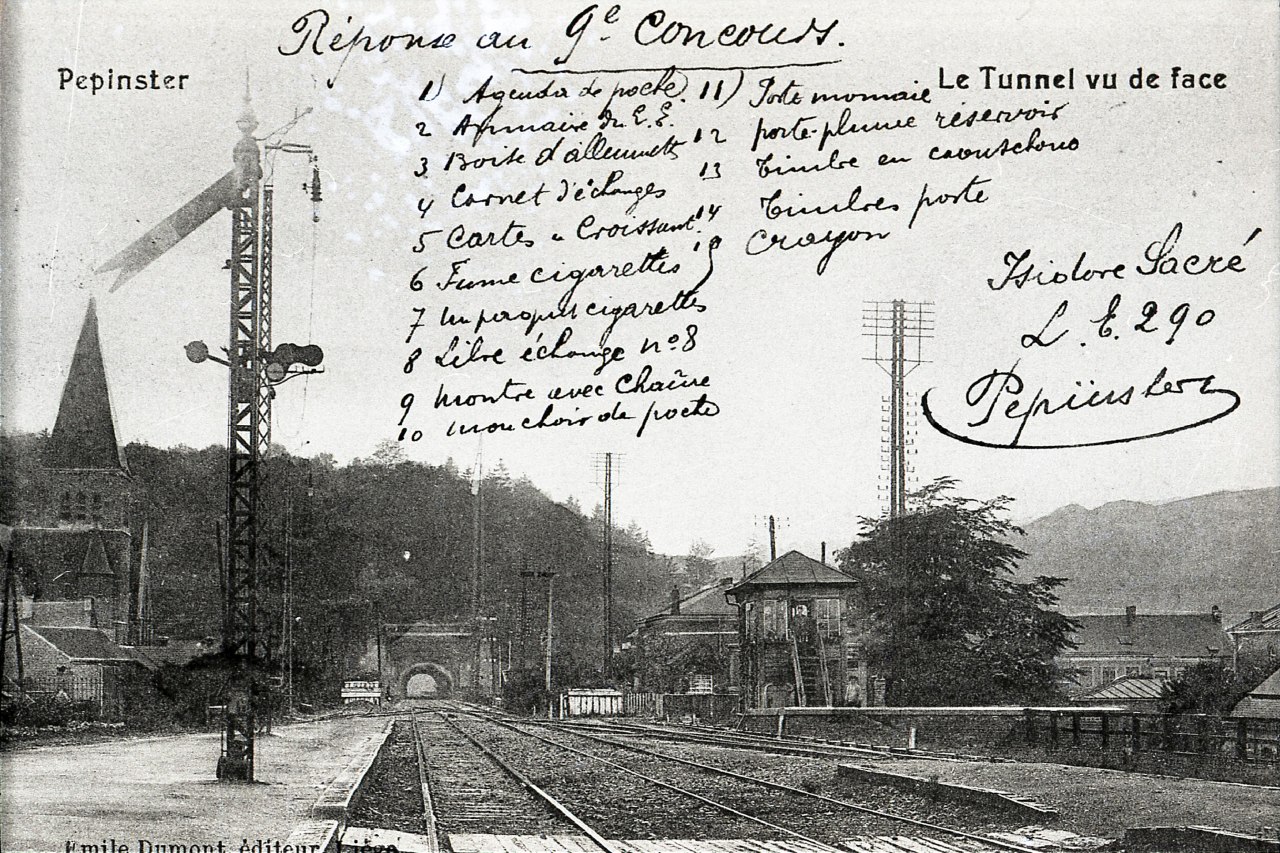 Réponse au 9e Concours.
Pepinster
Le Tunnel vu de face
1) Agenda de poche.
2 Annuaire du L. E.
3 Boite d'allumetts
4 Carnet d'échanges
5 Cartes "Croissant"
6 Fume cigarettes
7 Un paquet cigarettes
8 Libre échange nº 8
9 Montre avec Chaîne
10 mouchoir de poche
11) Porte monnaie
12 porte-plume réservoir
13 Timbre en caoutchouc
14 Timbres poste
15 Crayon
Isidore Sacré
L. E. 290
Pepinster
Emile Dumont, éditeur, Liége